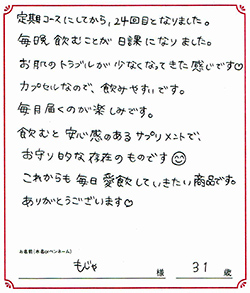 定期コースにしてから、24回目となりました。
毎晩飲むことが日課になりました。
お肌のトラブルが少なくなってきた感じです♡
カプセルなので、飲みやすいです。
毎月届くのが楽しみです。
飲むと安心感のあるサプリメントで、
お守り的な存在のものです😊
これからも毎日愛飲していきたい商品です。
ありがとうございます♡
お名前(本名orペンネーム)
もじゃ 様 31 歳